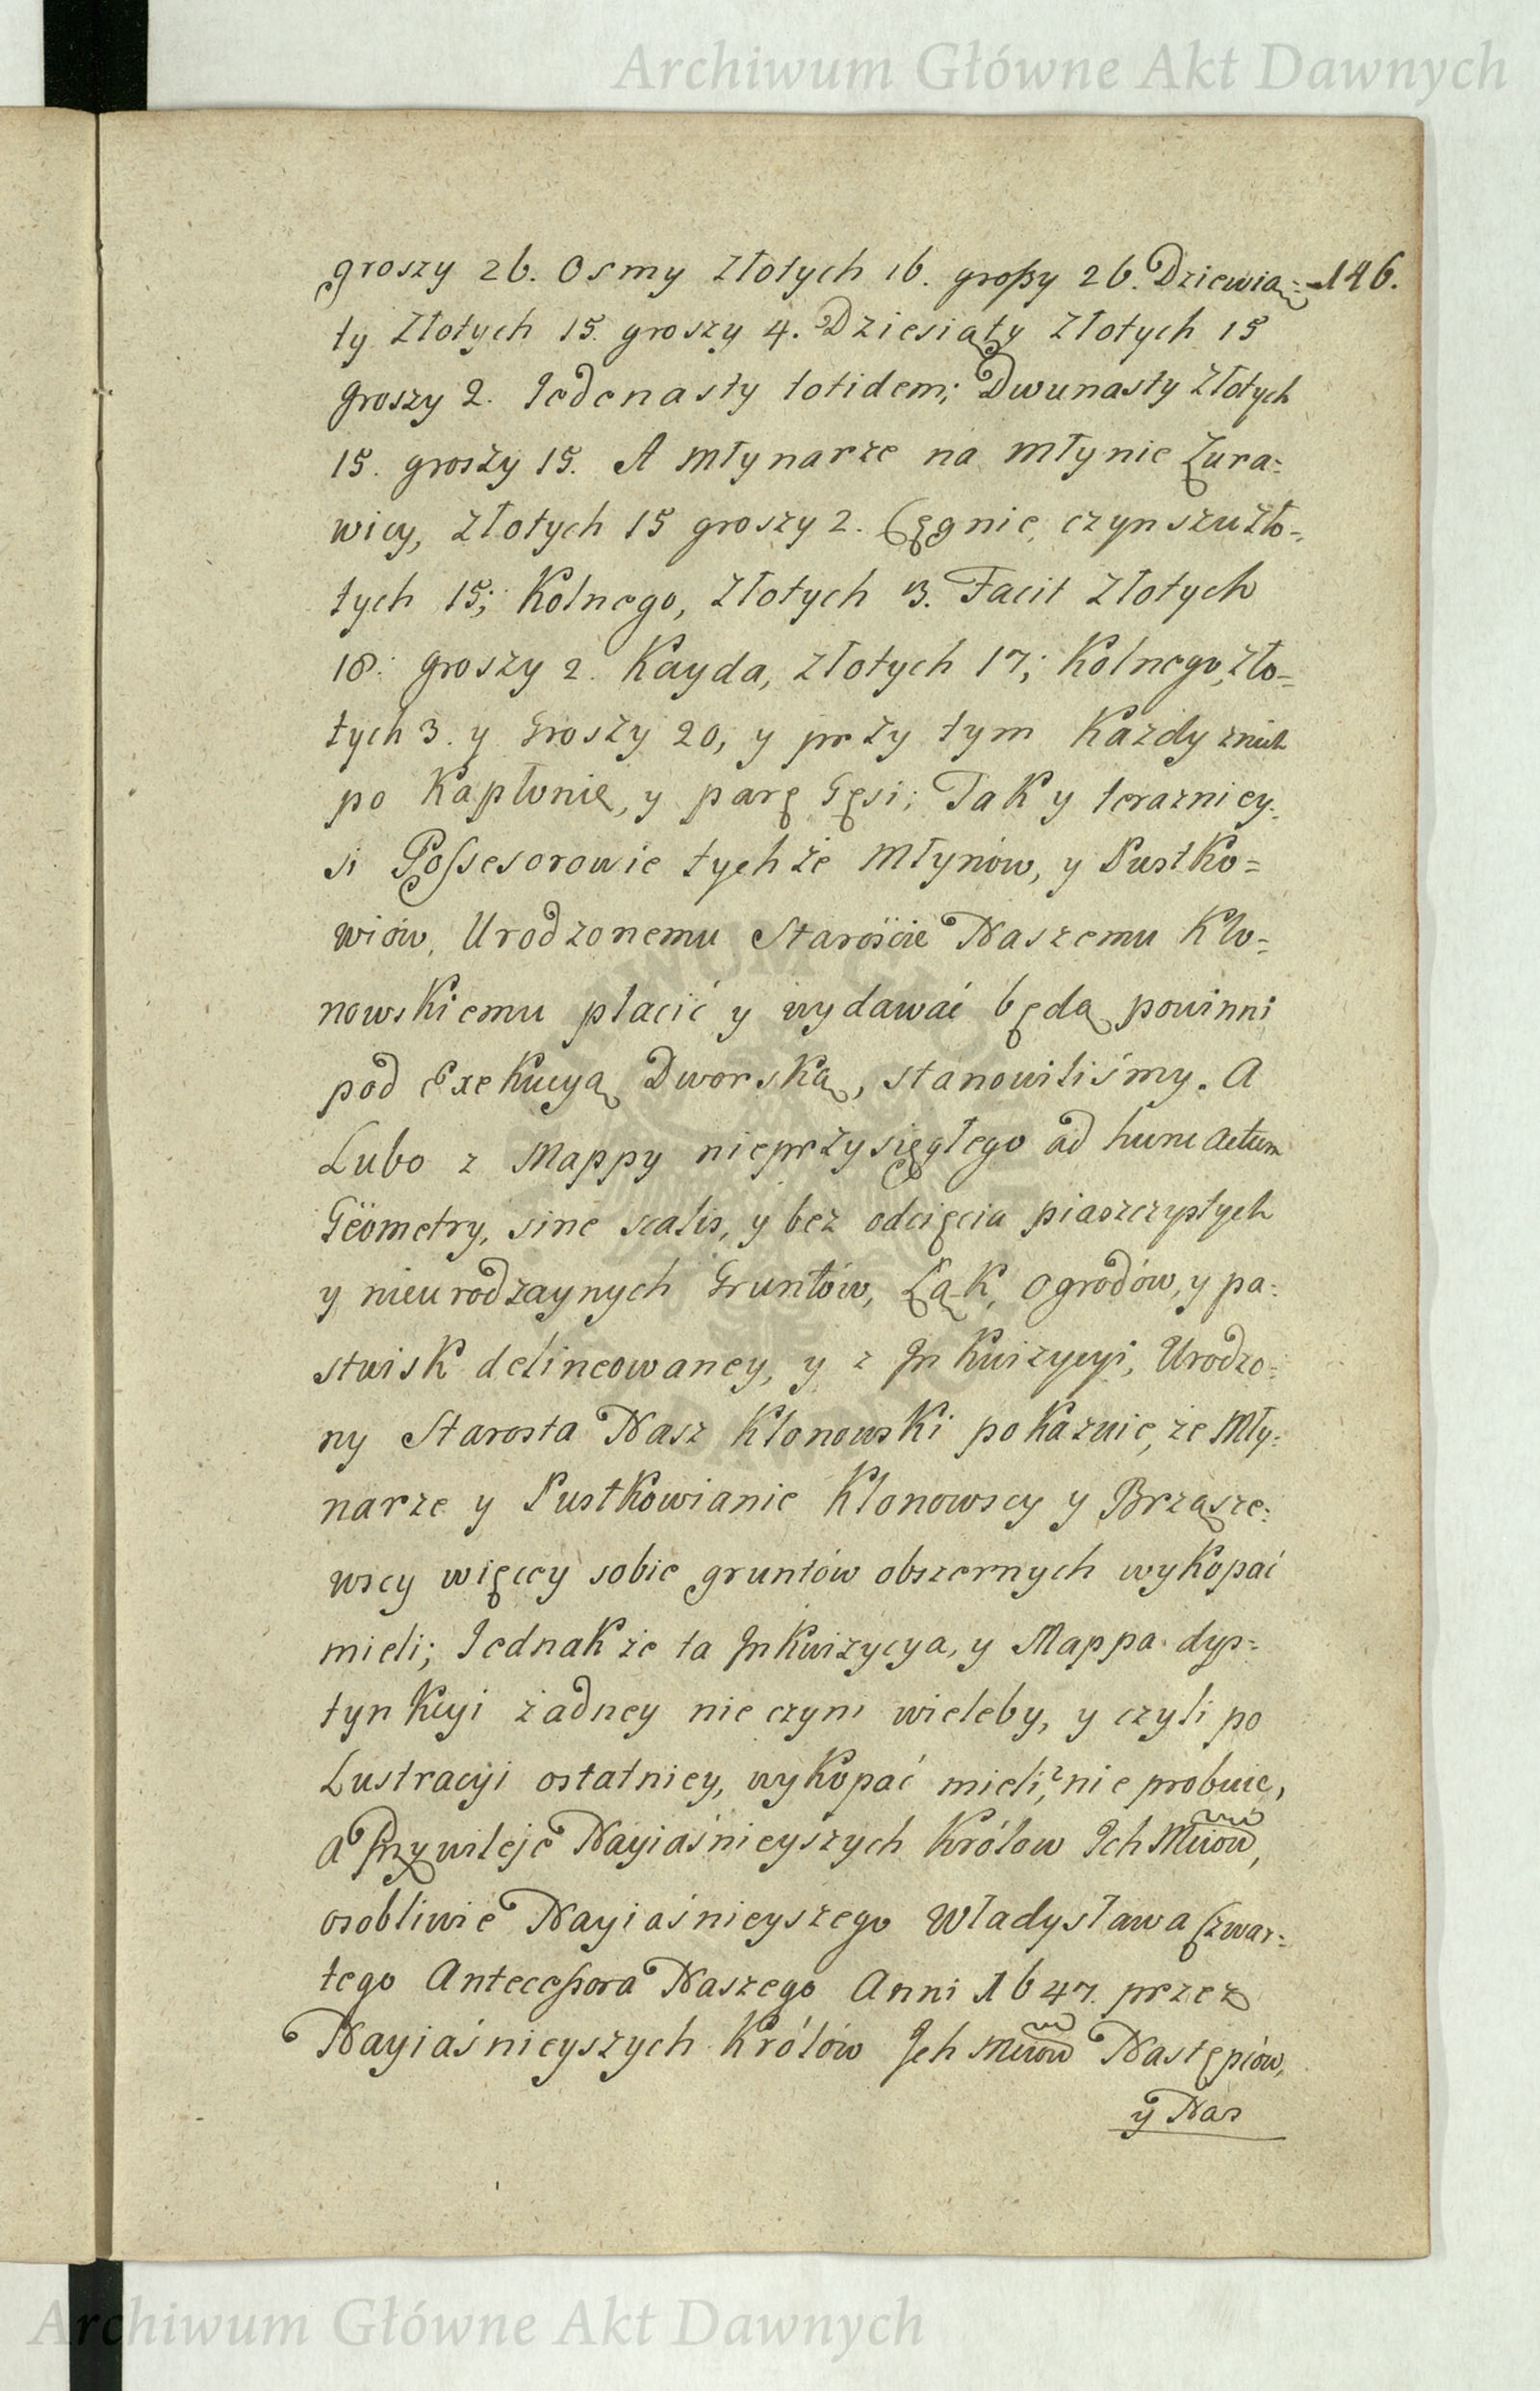 Archiwum Główne Akt Dawnych
groszy 26. Osmy Złotych 16. groszy 26. Dziewią= 146.
ty Złotych 15. groszy 4. Dziesiąty Złotych 15
groszy 2. Jedenasty totidem; Dwunasty Złotych
15. groszy 15. A Młynarze na Młynie Żura=
wicy, Złotych 15 groszy 2. Cęgnie, czynszu Zło=
tych 15; Kolnego, Złotych 3. Facit Złotych
18: groszy 2. Kayda, Złotych 17; Kolnego, Zło=
tych 3. y Groszy 20, y przy tym Każdy znich
po Kapłonie, y parę Gęsi; Tak y terazniey=
si Possesorowie tychże Młynów, y Pustko=
wiów, Urodzonemu Staroście Naszemu Klo=
nowskiemu płacić y wydawać będą powinni
pod Exekucyą Dworską, stanowiliśmy. A
Lubo z Mappy nieprzysięgłego ad hunc actum
Gëometry, sine scalis, y bez odcięcia piaszczystych
y nieurodzaynych Gruntów, Łąk, Ogrodów, y pa=
stwisk delineowaney, y z Inkwizycyi, Urodzo=
ny Starosta Nasz Klonowski pokazuie, że Mły=
narze y Pustkowianie Klonowscy y Brząsze=
wscy więcey sobie gruntów obszernych wykopać
mieli; Jednakże ta Inkwizycya, y Mappa dys=
tynkcyi żadney nie czyni wieleby, y czyli po
Lustracyi ostatniey, wykopać mieli,? nie probuie,
a Przywileje Nayiaśnieyszych Królow Ich Mciow,
osobliwie Nayiaśnieyszego Władysława Czwar=
tego Antecessora Naszego Anni 1647. przez
Nayiaśnieyszych Królów Ich Mciow Następców,
y Nas
Archiwum Główne Akt Dawnych